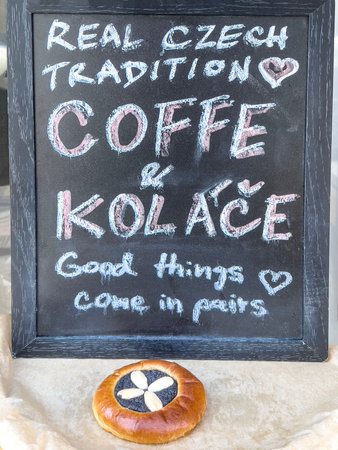 REAL CZECH
TRADITION
COFFE
&
KOLÁČE
Good things
come in pairs